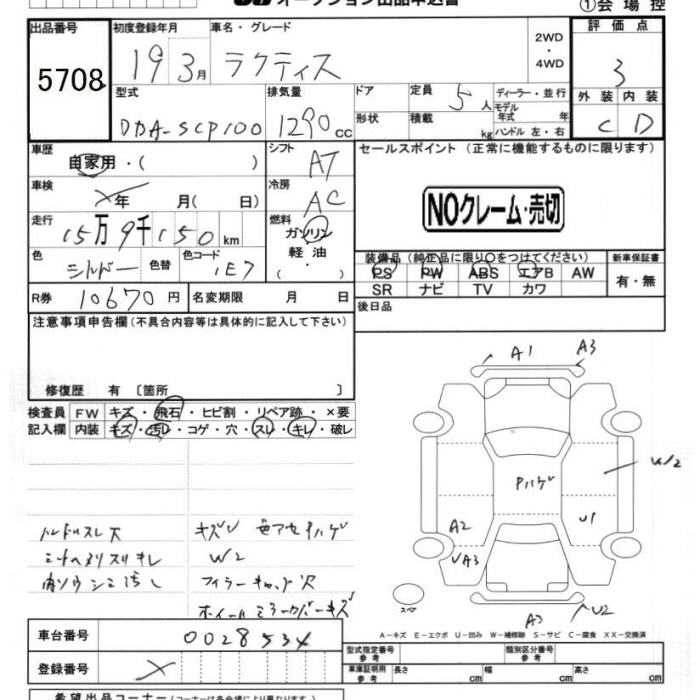 オークション出品申込書
①会場控
出品番号
5708
初度登録年月
19 3月
車名・グレード
ラクティス
2WD
・
4WD
評価点
3
外装 内装
C D
型式
DBA-SCP100
排気量
1290 CC
ドア
形状
定員
5人
積載
kg
ディーラー・並行
モデル
年式 年
ハンドル 左・右
車歴
自家用・( )
シフト
AT
セールスポイント (正常に機能するものに限ります)
NOクレーム・売切
車検
年 月( 日)
冷房
AC
走行
15万9千150km
燃料
ガソリン
軽油
( )
色
シルバー
色替
色コード
1E7
装備品 (純正品に限り○をつけてください)
PS PW ABS エアB AW
SR ナビ TV カワ
新車保証書
有・無
R券
10670円
名変期限 月 日
後日品
注意事項申告欄 (不具合内容等は具体的に記入して下さい)
修復歴 有 〔箇所 〕
検査員
記入欄
FW キズ・飛石・ヒビ割・リペア跡・×要
内装 キズ・汚レ・コゲ・穴・スレ・キレ・破レ
ハンドルスレ大
シートヘタリスリキレ
内ソウシミ汚レ
キズU 色アセハゲ
W2
フィラーキャップ穴
ホイールミラーカバーキズ
A1
A3
W2
Pハゲ
U1
A2
UA3
スペア
A3
U2
A-キズ E-エクボ U-凹み W-補修跡 S-サビ C-腐食 XX-交換済
車台番号
0028534
登録番号
型式指定番号
参考
類別区分番号
参考
車庫証明用
参考
長さ
幅
高さ
希望出品コーナー (コーナーは各会場により異なります)